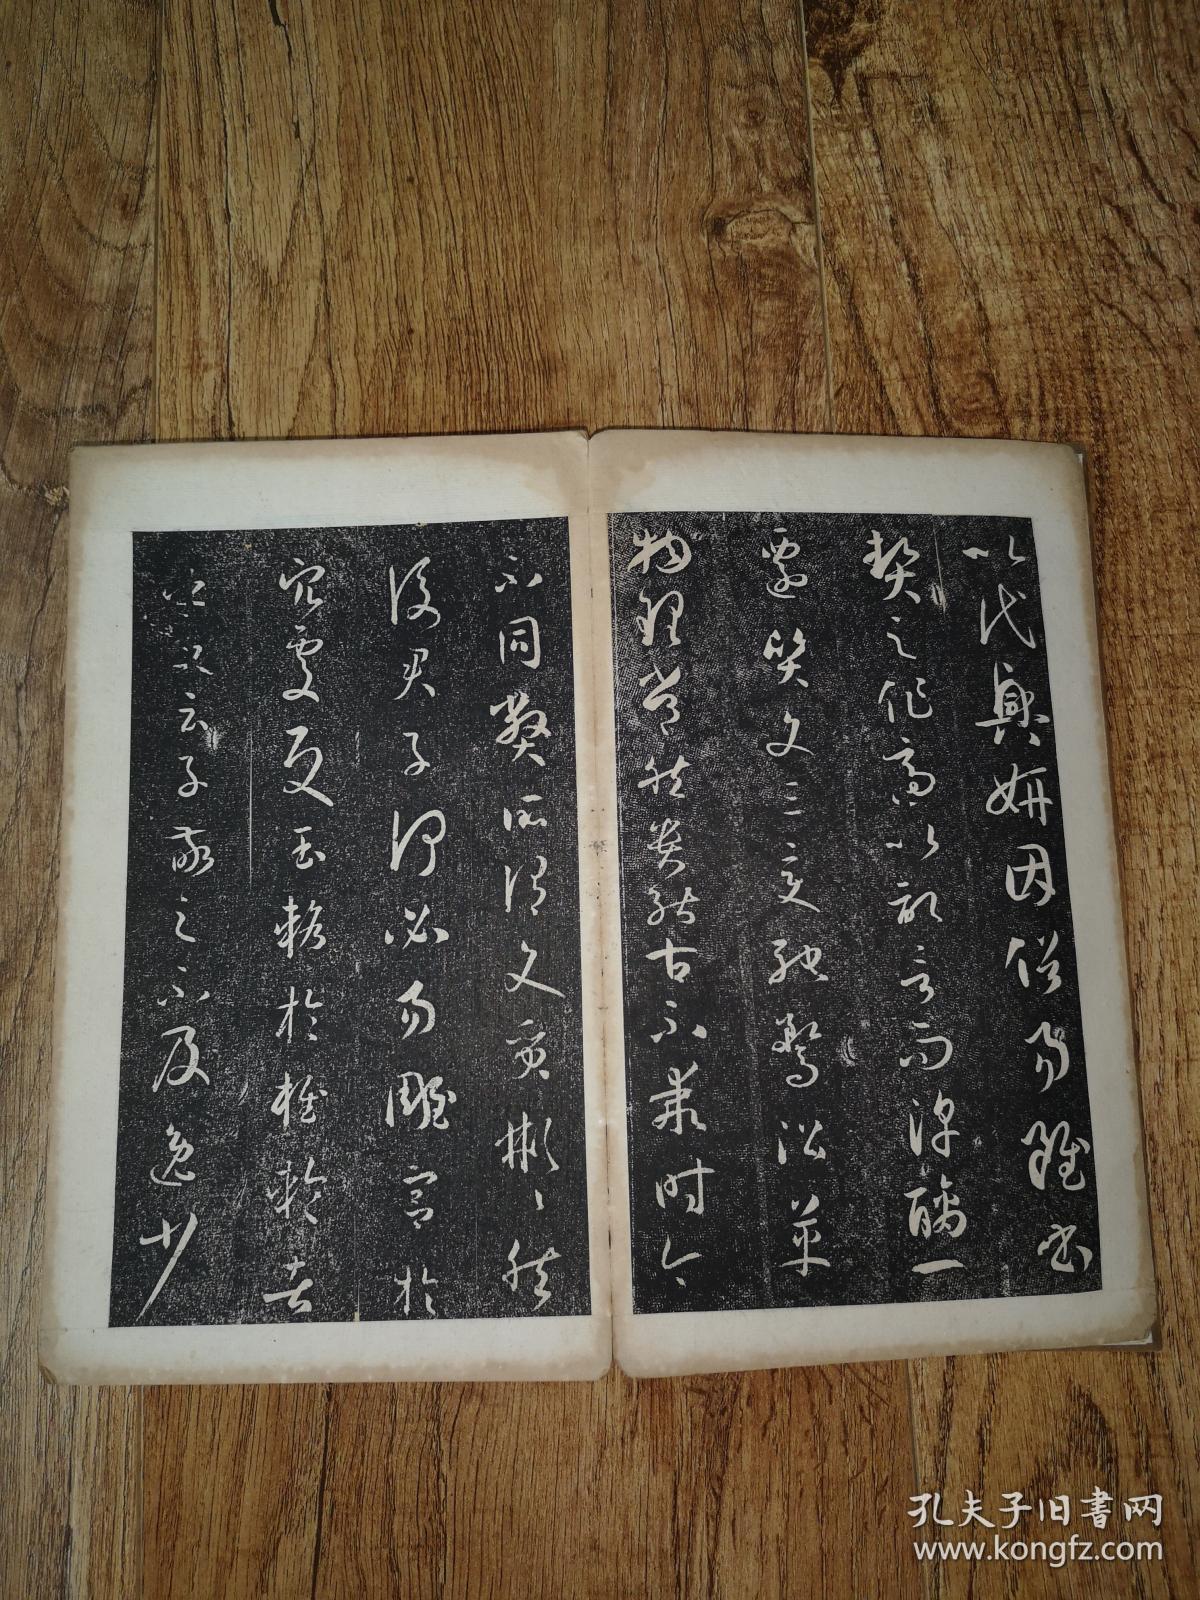 以代興妍因俗易雖書
契之作適以記言而淳醨一
遷質文三變馳騖沿革
物理常然貴能古不乖時今
不同弊所謂文質彬〻然
後君子何必易雕宮於
穴處反玉輅於椎輪者
乎又云子敬之不及逸少
孔夫子旧書网
www.kongfz.com